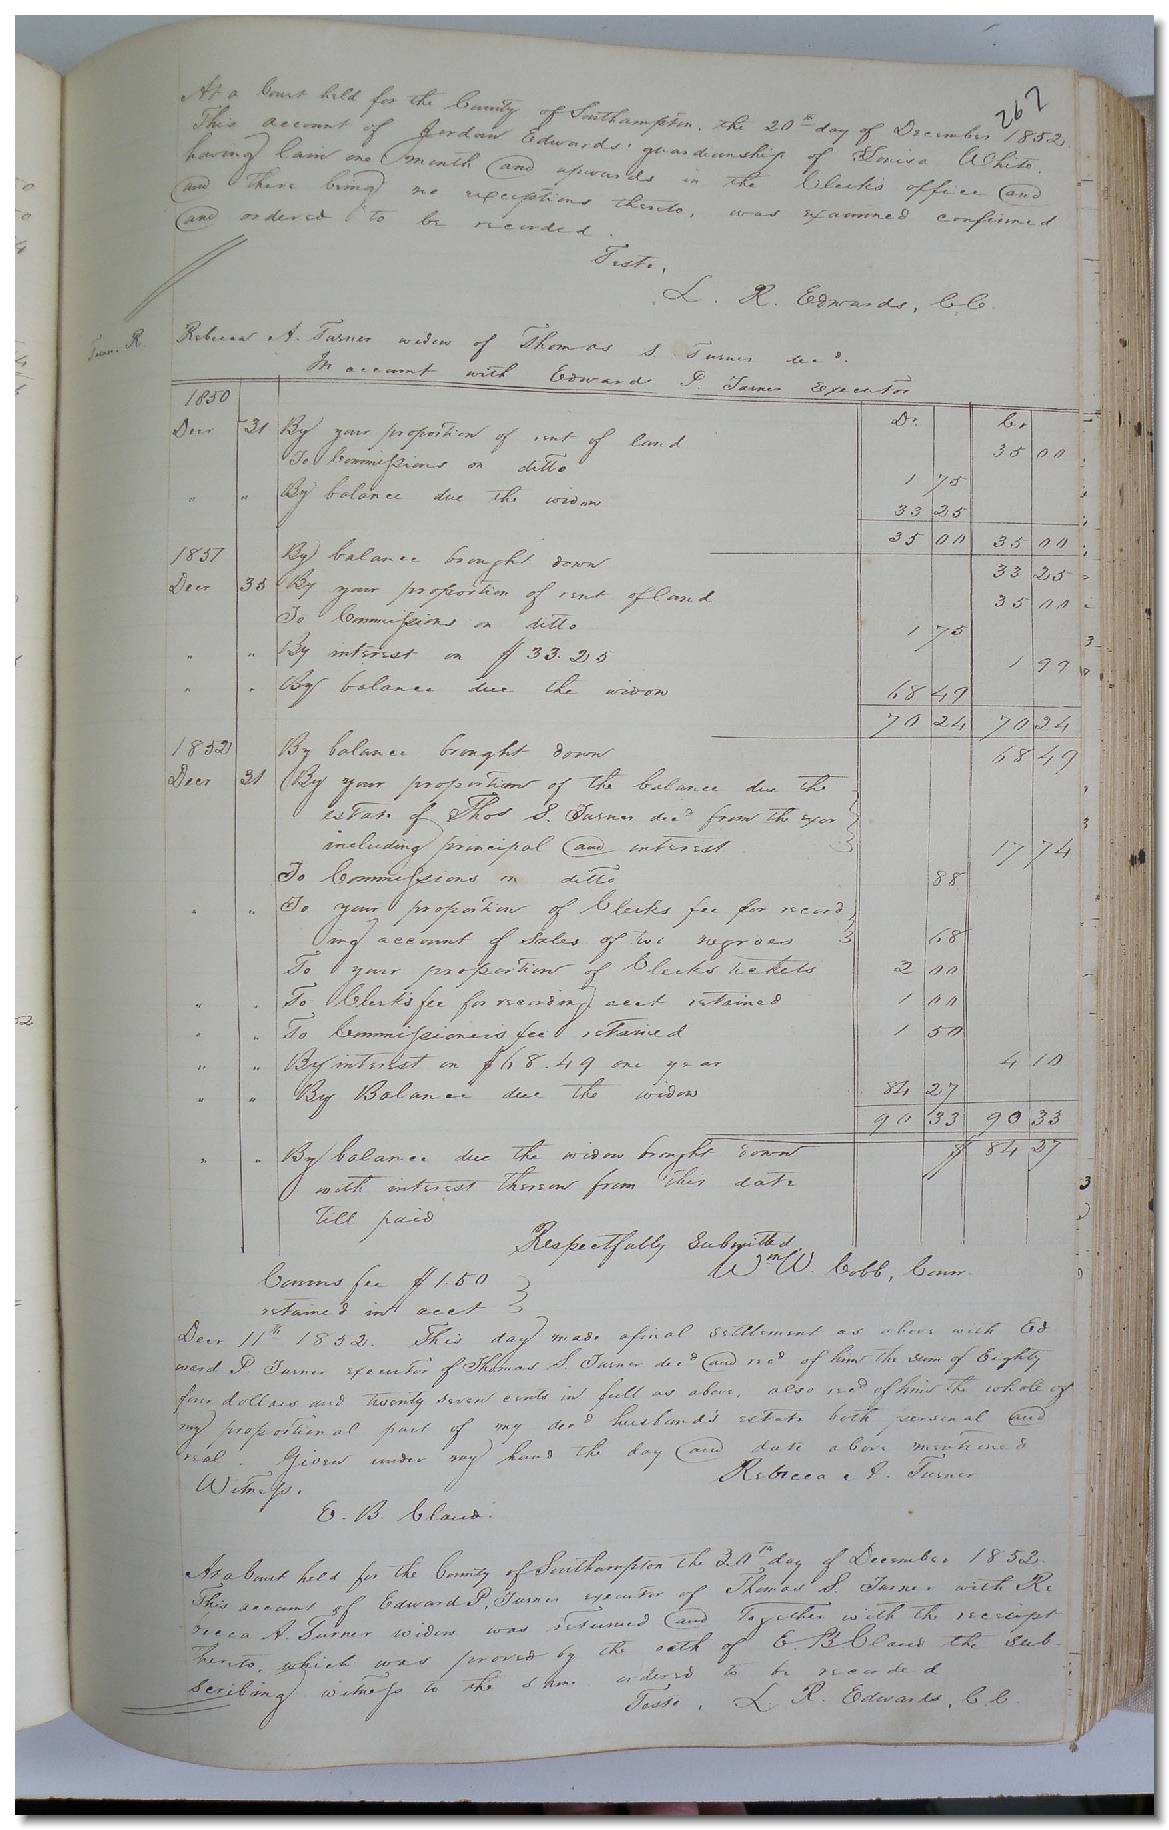 267
At a Court held for the County of Southampton, the 20th day of December 1852
This account of Jordan Edwards' guardianship of Louisa White,
having lain one month and upwards in the Clerk's office and
and there being no exceptions thereto, was examined confirmed
and ordered to be recorded.
Teste,
L. R. Edwards, C.C.
Turn. R. Rebecca A. Turner widow of Thomas S. Turner decd.
In account with Edward P. Turner executor
1850 Dr. Cr.
Decr 31 By your proportion of rent of land 35 00
To Commissions on ditto 1 75
" " By balance due the widow 33 25
35 00 35 00
1851 By balance brought down 33 25
Decr 35 By your proportion of rent of land 35 00
To Commissions on ditto 1 75
" " By interest on $33.25 1 99
" " By balance due the widow 68 49
70 24 70 24
1852 By balance brought down 68 49
Decr 31 By your proportion of the balance due the
estate of Thos S. Turner decd from the exor
including principal and interest 17 74
To Commissions on ditto 88
" " To your proportion of Clerks fee for record
ing account of sales of two negroes 68
To your proportion of Clerks tickets 2 00
" " To Clerk's fee for recording acct retained 1 00
" " To Commissioners fee retained 1 50
" " By interest on $68.49 one year 4 10
" " By Balance due the widow 84 27
90 33 90 33
" " By balance due the widow brought down $ 84 27
with interest thereon from this date
till paid
Respectfully Submitted
Wm W. Cobb, Comr.
Comrs fee $1.50
retained in acct
Decr 11th 1852. This day made a final settlement as above with Ed
ward P Turner executor of Thomas S. Turner decd and recd of him the sum of Eighty
four dollars and twenty seven cents in full as above, also recd of him the whole of
my proportional part of my decd husband's estate both personal and
real. Given under my hand the day and date above mentioned
Rebecca A. Turner
Witness,
E. B. Claud.
At a Court held for the County of Southampton the 20th day of December 1852.
This account of Edward P. Turner executor of Thomas S. Turner with Re
becca A. Turner widow was returned and together with the receipt
thereto, which was proved by the oath of E. B Claud the sub-
scribing witness to the same ordered to be recorded
Teste, L. R. Edwards, C.C.